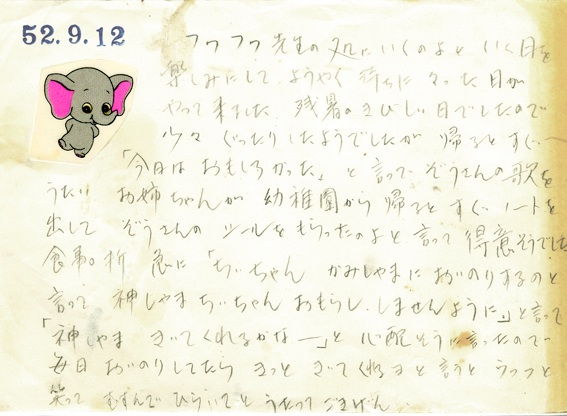 52.9.12
フワフワ先生の処にいくのよと いく日を
楽しみにして ようやく 待ちに待った日が
やって来ました. 残暑のきびしい日でしたので
少々 ぐったりしたようでしたが 帰るとすぐ
「今日は おもしろかった」と言って ぞうさんの歌を
うたい お姉ちゃんが 幼稚園から帰るとすぐ ノートを
出して ぞうさんの シールをもらったのよと言って得意そうでした
食事の折 急に「ちいちゃん かみしゃまに おいのりするのと
言って 神しゃま ちぃちゃん おもらし.しませんように」と言って
「神しゃま きいてくれるかな―」と 心配そうに言ったので
毎日 おいのりしてたら きっと きいてくれると言うと うふっと
笑って むすんでひらいてと うたって ごきげん